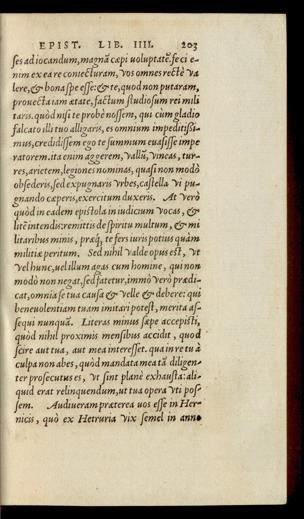 EPIST. LIB. IIII. 203
ses ad iocandum, magnã capi uoluptatẽ. feci e-
nim ex ea re coniecturam, vos omnes rectè va
lere, & bona spe esse: & te, quod non putaram,
prouecta iam ætate, factum studiosum rei mili
taris. quòd nisi te probè nossem, qui cùm gladio
falcato illi tuo alligaris, es omnium impeditissi-
mus, credidissem ego te summum euasisse impe
ratorem. ita enim aggerem, vallũ, vineas, tur-
res, arietem, legiones nominas, quasi non modò
obsederis, sed expugnaris vrbes, castella vi pu-
gnando cæperis, exercitum duxeris. At verò
quòd in eadem epistola in iudicium vocas, &
litẽ intendis: remittis de spiritu multum, & mi
litaribus minis, præq́; te fers iuris potius quàm
militiæ peritum. Sed nihil valde opus est, vt
vel hunc, uel illum agas cum homine, qui non
modò non negat, sed fatetur, immò verò prædi-
cat, omnia se tua causa & velle & debere: qui
beneuolentiam tuam imitari potest, merita as-
sequi nunquã. Literas minus sæpe accepisti,
quòd nihil proximis mensibus accidit, quod
scire aut tua, aut mea interesset. qua in re tu à
culpa non abes, quòd mandata mea tã diligen-
ter prosecutus es, vt sint planè exhausta: ali-
quid erat relinquendum, ut tua opera vti pos-
sem. Audiueram præterea uos esse in Her-
nicis, quò ex Hetruria vix semel in anno